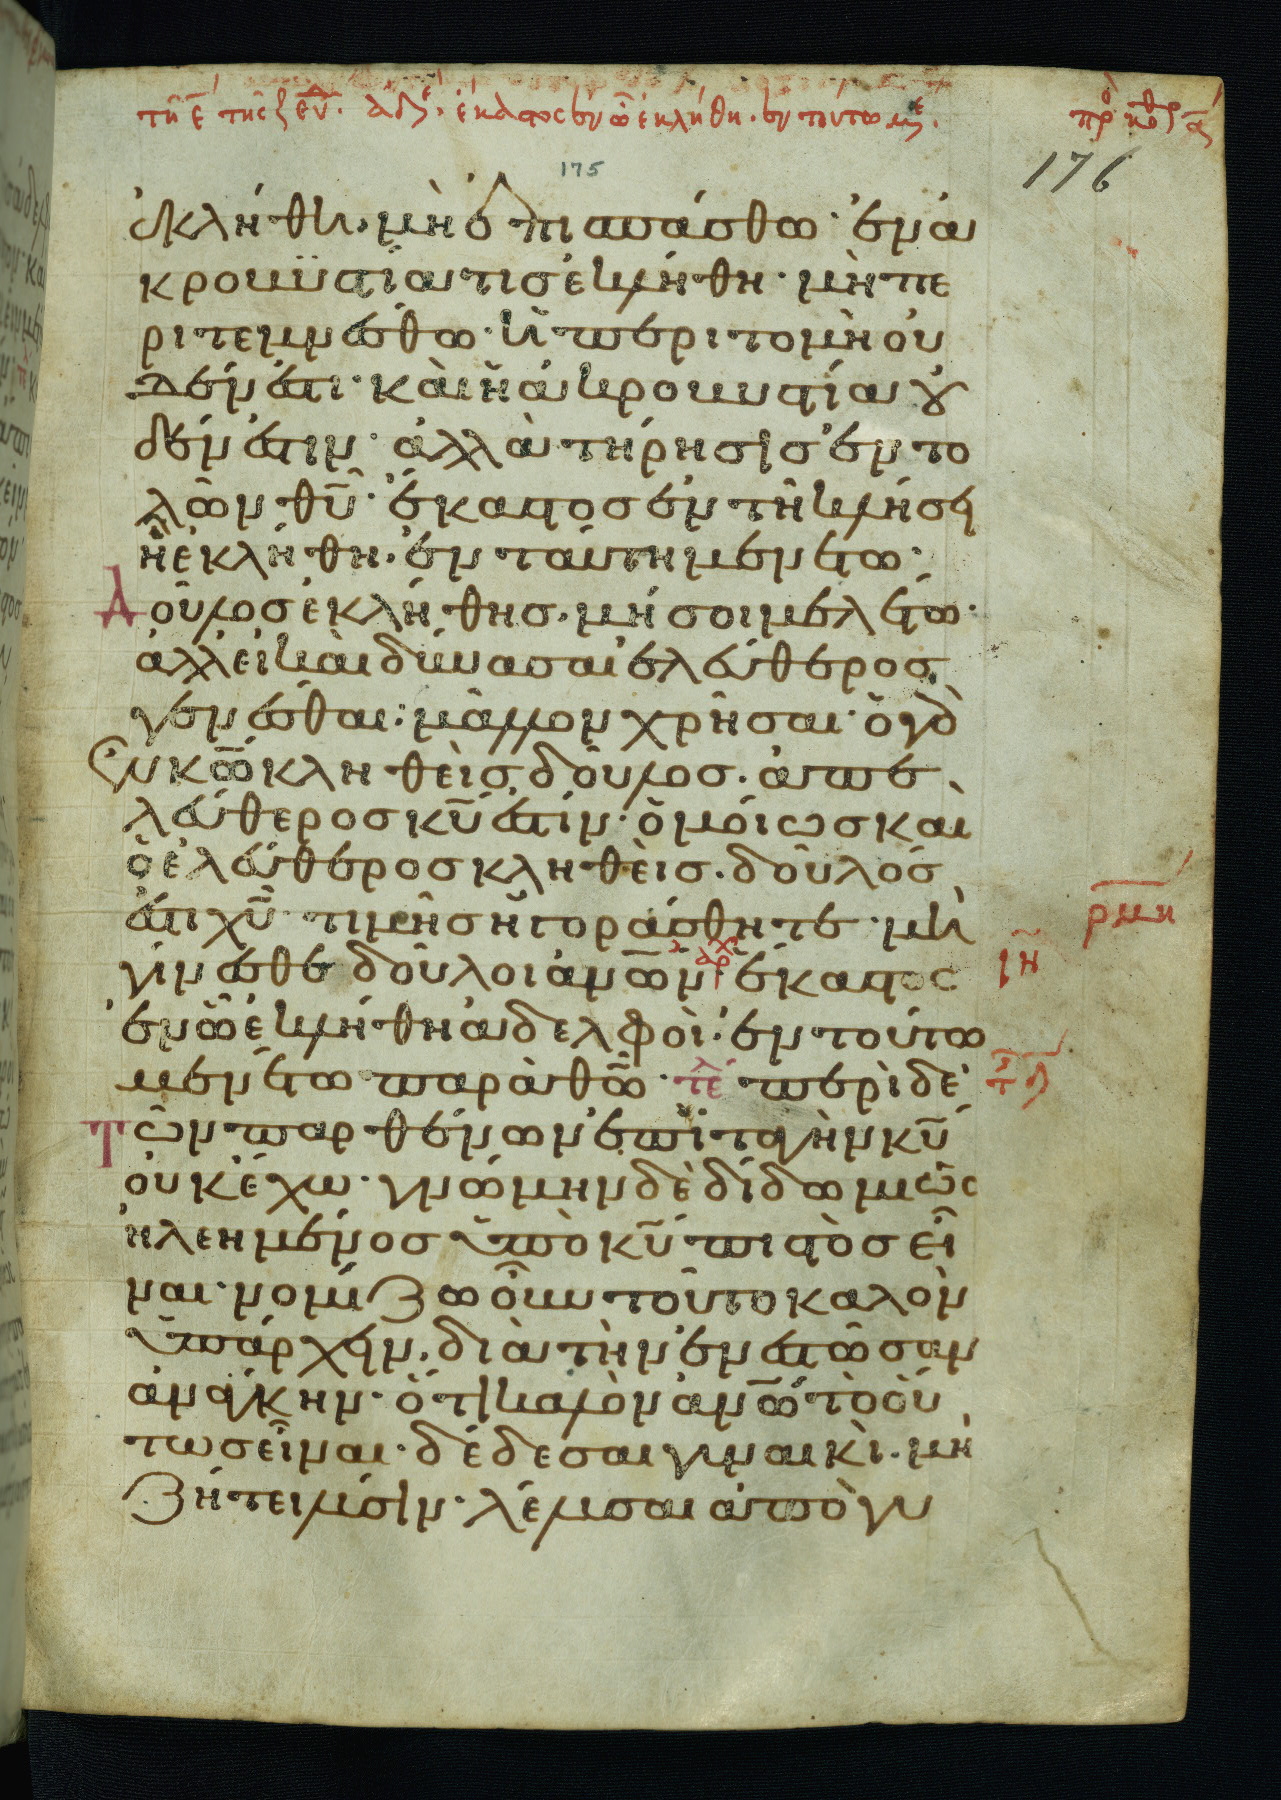 τῆ ε τῆς ξ εὐ. ἀδε. ἕκαστος ἐν ᾧ ἐκλήθη. ἐν τούτω με. πρ κορ α
175
176
ἐκλήθη. μὴ ἐπισπάσθω· ἐν ἀ
κροβυστία τισ ἐκλήθη· μὴ πε
ριτεμνέσθω· ἡ περιτομὴ οὐ
δέν ἐστι· καὶ ἡ ἀκροβυστία οὐ
δέν ἐστιν· ἀλλὰ τήρησισ ἐντο
λῶν θῦ· ἕκαστοσ ἐν τῆ κλήσει
ἧ ἐκλήθη. ἐν ταύτη μενέτω·
Δοῦλοσ ἐκλήθησ. μή σοι μελέτω·
ἀλλ' εἰ καὶ δύνασαι ἐλεύθεροσ
γενέσθαι· μᾶλλον χρῆσαι· ὁ γὰρ
ἐν κῶ κληθεὶσ δοῦλοσ. ἀπε
λεύθεροσ κῦ ἐστίν· ὁμοίωσ καὶ
ὁ ἐλεύθεροσ κληθεὶσ. δοῦλόσ
ἐστι χῦ· τιμῆσ ἠγοράσθητε· μὴ
γίνεσθε δοῦλοι ἀνῶν· ἀρχ ἕκαστοσ
ἐν ᾧ ἐκλήθη ἀδελφοὶ· ἐν τούτω
μενέτω παρὰ θῶ· τε περὶ δὲ
Τῶν παρθένων ἐπιταγὴν κῦ
οὐκ ἔχω· γνώμην δὲ δίδωμι ὡς
ἠλεημένοσ ὑπὸ κῦ πιστὸσ εἶ
ναι· νομίζω οὖν τοῦτο καλὸν
ὑπάρχειν. διὰ τὴν ἐνεστῶσαν
ἀνάγκην· ὅτι καλὸν ἀνῶ τὸ οὕ
τωσ εἶναι· δέδεσαι γυναικὶ. μὴ
ζήτει λύσιν· λέλυσαι ἀπὸ γυ
ρμη
ιη